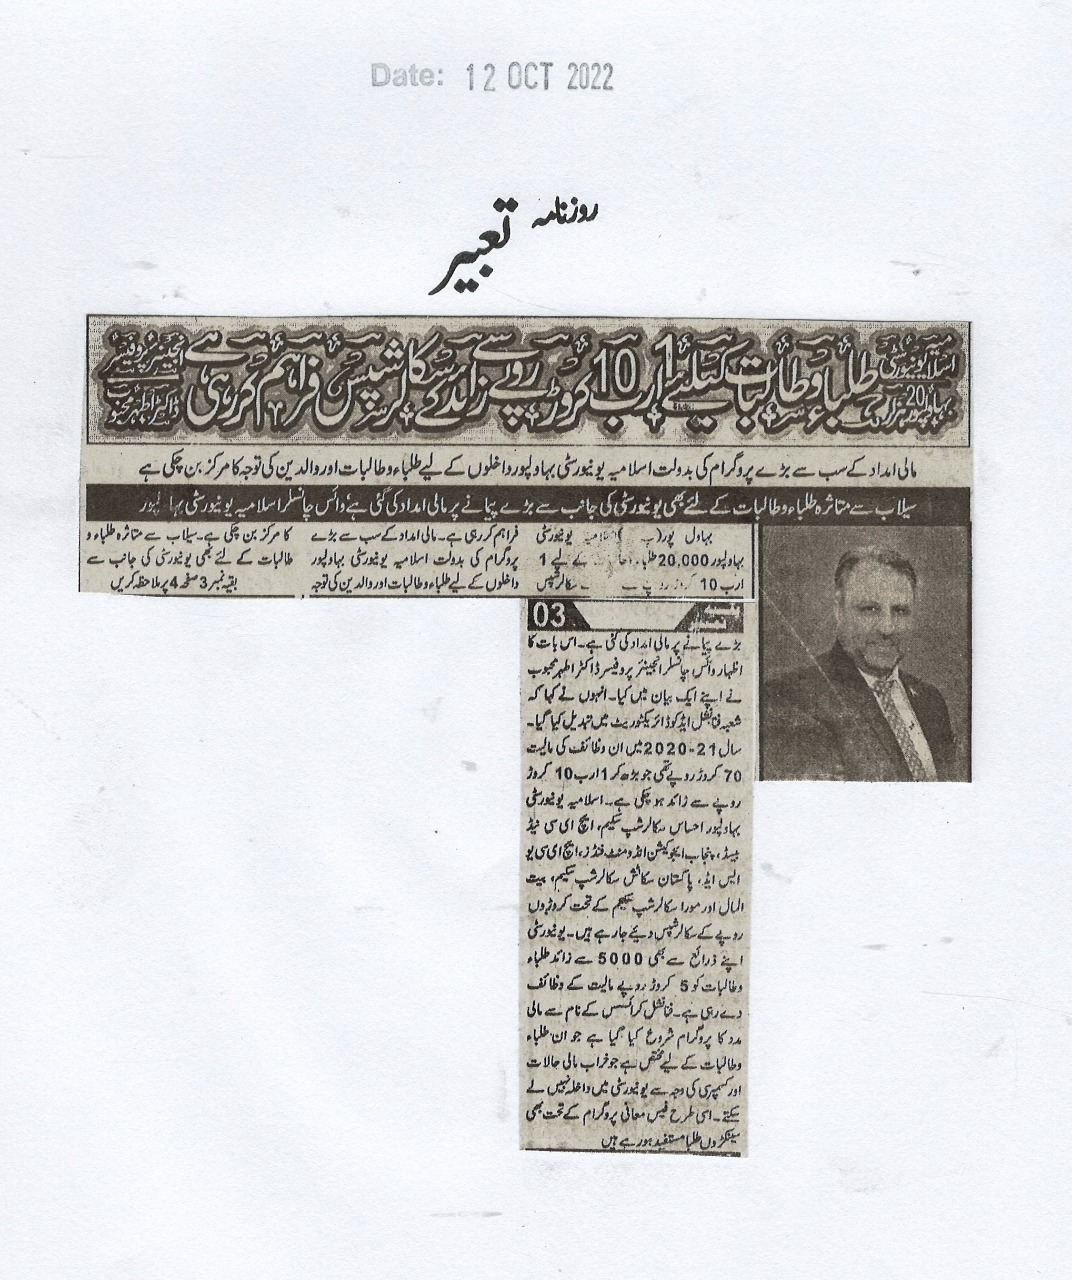 Date: 12 OCT 2022
روزنامہ تعبیر
اسلامیہ یونیورسٹی بہاولپور 20 ہزار
طلباء وطالبات کیلئے 1 ارب 10 کروڑ روپے سے زائد کے سکالرشپس فراہم کر رہی ہے
انجینئر پروفیسر ڈاکٹر اطہر محبوب
مالی امداد کے سب سے بڑے پروگرام کی بدولت اسلامیہ یونیورسٹی بہاولپور داخلوں کے لیے طلباء وطالبات اور والدین کی توجہ کا مرکز بن چکی ہے
سیلاب سے متاثرہ طلباء وطالبات کے لئے بھی یونیورسٹی کی جانب سے بڑے پیمانے پر مالی امداد کی گئی ہے وائس چانسلر اسلامیہ یونیورسٹی بہاولپور
بہاول پور( اسلامیہ یونیورسٹی
بہاولپور 20,000 طلباء کے لیے 1
ارب 10 کروڑ روپے سکالرشپس
فراہم کر رہی ہے۔ مالی امداد کے سب سے بڑے
پروگرام کی بدولت اسلامیہ یونیورسٹی بہاولپور
داخلوں کے لیے طلباء وطالبات اور والدین کی توجہ
کا مرکز بن چکی ہے۔ سیلاب سے متاثرہ طلباء و
طالبات کے لئے بھی یونیورسٹی کی جانب سے
بقیہ نمبر 3 صفحہ 4 پر ملاحظہ کریں
03
بڑے پیمانے پر مالی امداد کی گئی ہے۔ اس بات کا
اظہار وائس چانسلر انجینئر پروفیسر ڈاکٹر اطہر محبوب
نے اپنے ایک بیان میں کیا۔ انہوں نے کہا کہ
شعبہ فنانشل ایڈ کو ڈائریکٹوریٹ میں تبدیل کیا گیا۔
سال 21-2020 میں ان وظائف کی مالیت
70 کروڑ روپے تھی جو بڑھ کر 1 ارب 10 کروڑ
روپے سے زائد ہو چکی ہے۔ اسلامیہ یونیورسٹی
بہاولپور احساس سکالرشپ سکیم، ایچ ای سی نیڈ
بیسڈ، پنجاب ایجوکیشن انڈومنٹ فنڈز، ایچ ای سی یو
ایس ایڈ، پاکستان سکاٹش سکالرشپ سکیم، بیت
المال اور مورا سکالرشپ سکیم کے تحت کروڑوں
روپے کے سکالرشپس دیئے جا رہے ہیں۔ یونیورسٹی
اپنے ذرائع سے بھی 5000 سے زائد طلباء
وطالبات کو 5 کروڑ روپے مالیت کے وظائف
دے رہی ہے۔ فنانشل کرائسس کے نام سے مالی
مدد کا پروگرام شروع کیا گیا ہے جو ان طلباء
وطالبات کے لیے مختص ہے جو خراب مالی حالات
اور کسمپرسی کی وجہ سے یونیورسٹی میں داخلہ نہیں لے
سکتے۔ اسی طرح فیس معافی پروگرام کے تحت بھی
سینکڑوں طلبا مستفید ہو رہے ہیں